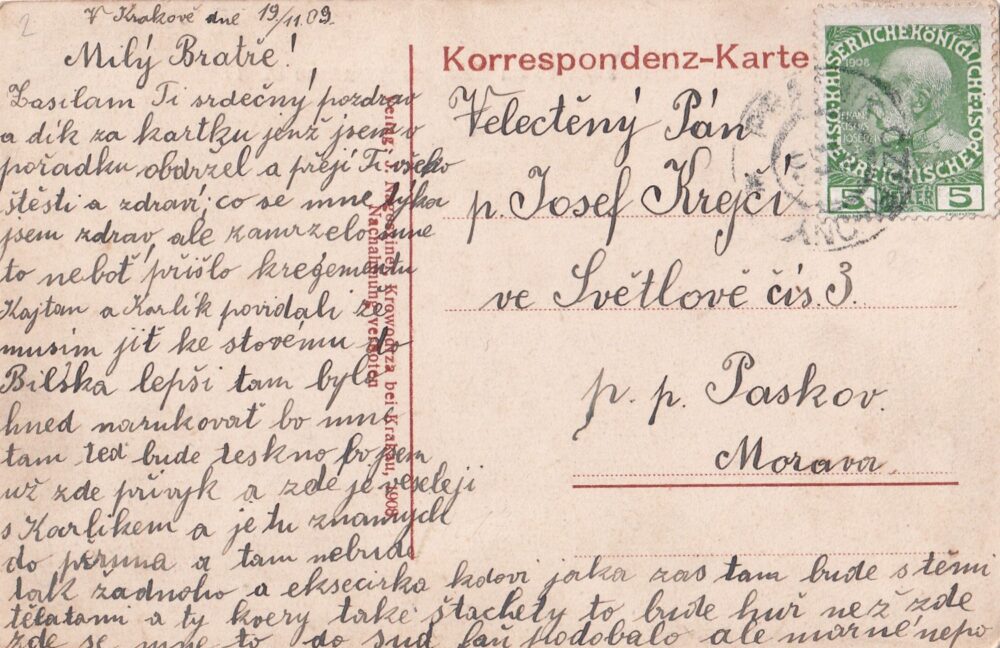 2
V Krakově dne 19/11 09.
Milý Bratře!
Zasílam Ti srdečný pozdrav
a dík za kartku jenž jsem v
pořadku obdržel a přeji Ti všeho
štěsti a zdraví; co se mne týka
jsem zdrav, ale zamrzelo mne
to neboť přišlo k regementu
Kajtan a Karlík povidali že
musim jit ke stovému do
Bilska lepši tam bylo
hned narukovať bo mne
tam teď bude teskno bo jsem
už zde přivyk a zde je veseleji
s Karlikem a je tu znamych
do
a tam nebude
tak žadnoho a eksecirka kdovi jaka zas tam bude s těmi
tělatami a ty kvery take štachety to bude huř než zde
zde se mne to do sud podobalo ale marné, nepo
Korrespondenz-Karte
Velectěný Pán
p. Josef Krejči
ve Světlově čís. 3.
p. p. Paskov.
Morava
Verlag J. Krowodrza bei Krakau, 1908
Nachahmung verboten
KAISERLICHE KÖNIGLICHE
ÖSTERREICHISCHE POST
1908
5 HELLER 5